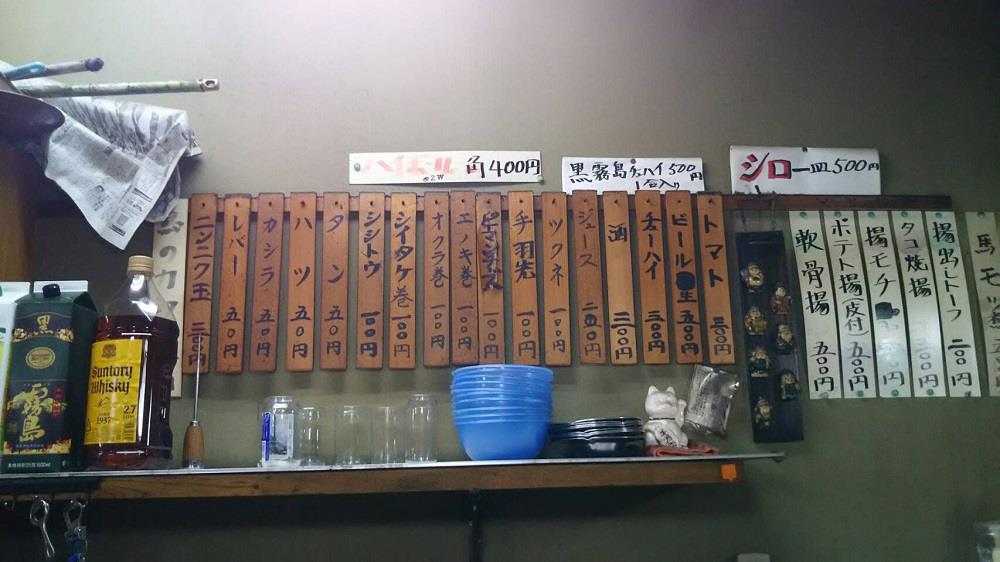 ハイボール 角400円
黒霧島チューハイ500円
1合入り
シロ一皿500円
ニンニク玉 二〇〇円
レバー 五〇円
カシラ 五〇円
ハツ 五〇円
タン 五〇円
シシトウ 一〇〇円
シイタケ巻 一〇〇円
オクラ巻 一〇〇円
エノキ巻 一〇〇円
一〇〇円
手羽先 一〇〇円
ツクネ 一〇〇円
ジュース 二〇〇円
酒 三〇〇円
チューハイ 三〇〇円
ビール 生 五〇〇円
トマト 三〇〇円
軟骨揚 五〇〇円
ポテト揚(皮付)
揚モチ
タコ焼揚
揚出しトーフ 二〇〇円
馬モツ
黒
霧島
Suntory
Whisky
1937
2.7